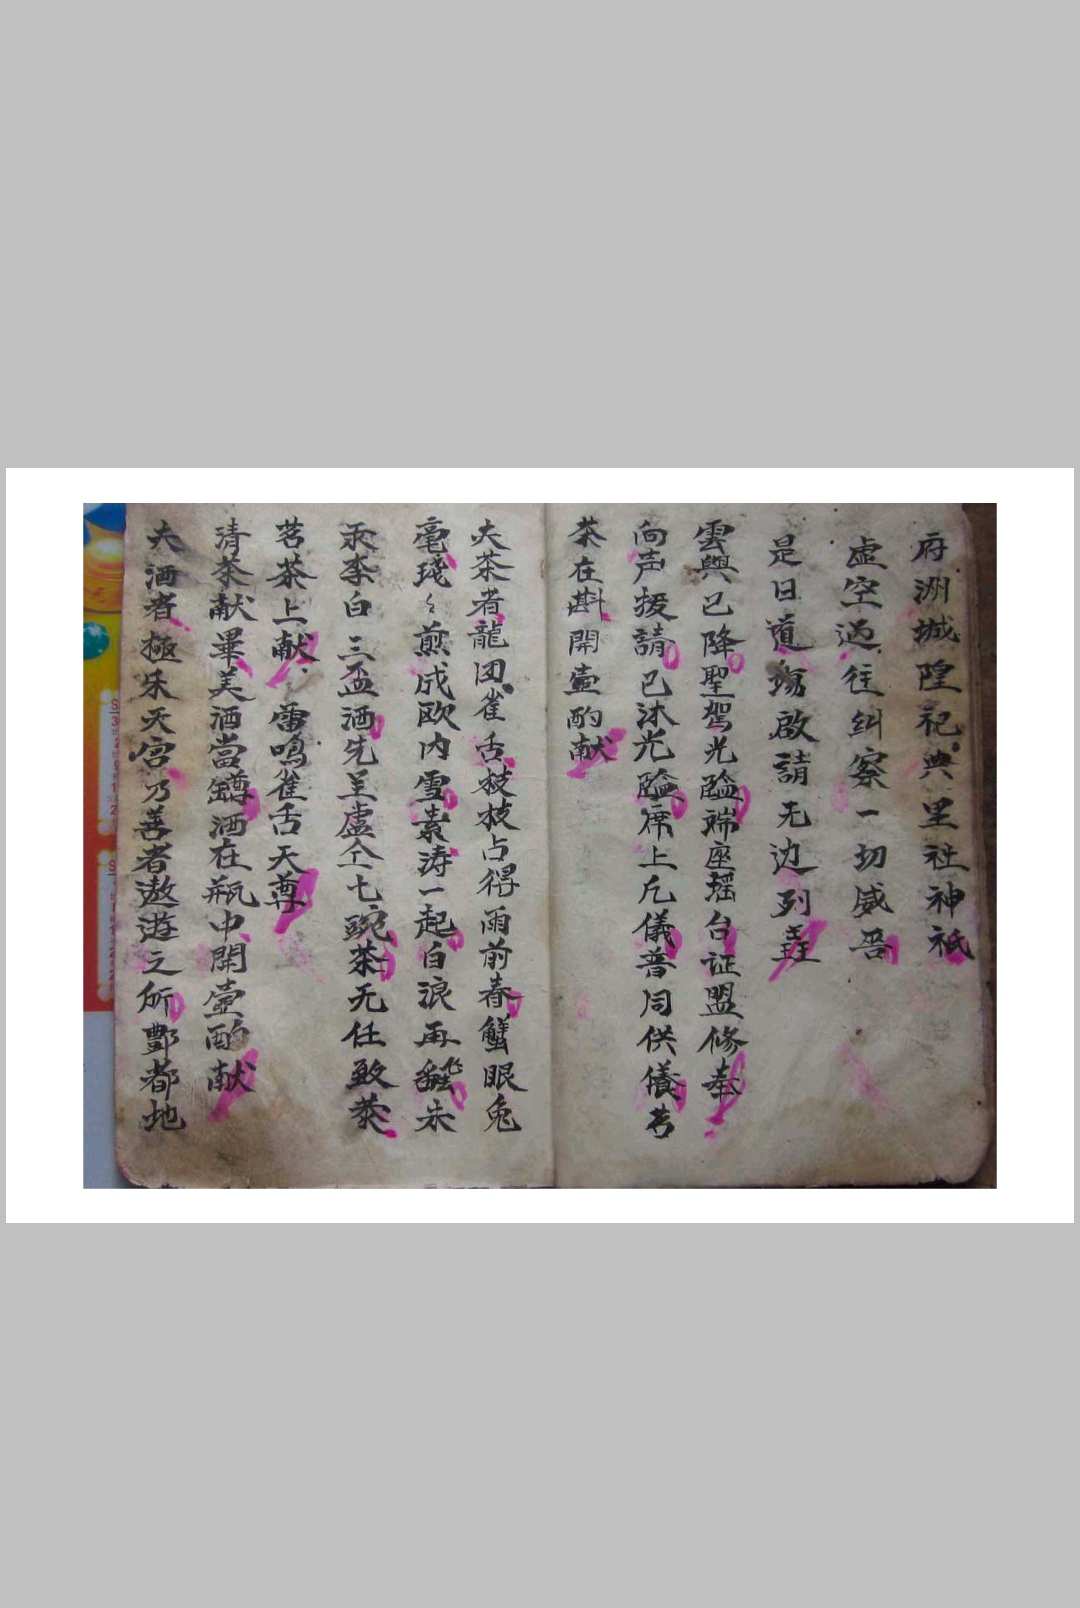 府洲城隍祀典里社神祇
虚空过往纠察一切威昏
是日道塲啟請无边列聖
雲與已降聖駕光臨端座瑶台证盟修奉
向声援請已沐光臨席上凡儀普同供儀茗
茶在斟開壶酌献
夫茶者龍团雀舌枝枝占得雨前春蟹眼兔
毫琖々煎成欧内雪素涛一起白浪再翻未
汞李白三盃洒先呈虚仝七碗茶无任致恭
茗茶上献雷鳴雀舌天尊
清茶献畢美洒當鐏洒在瓶中開壼酌献
夫洒者極乐天宫乃善者遨遊之所酆都地